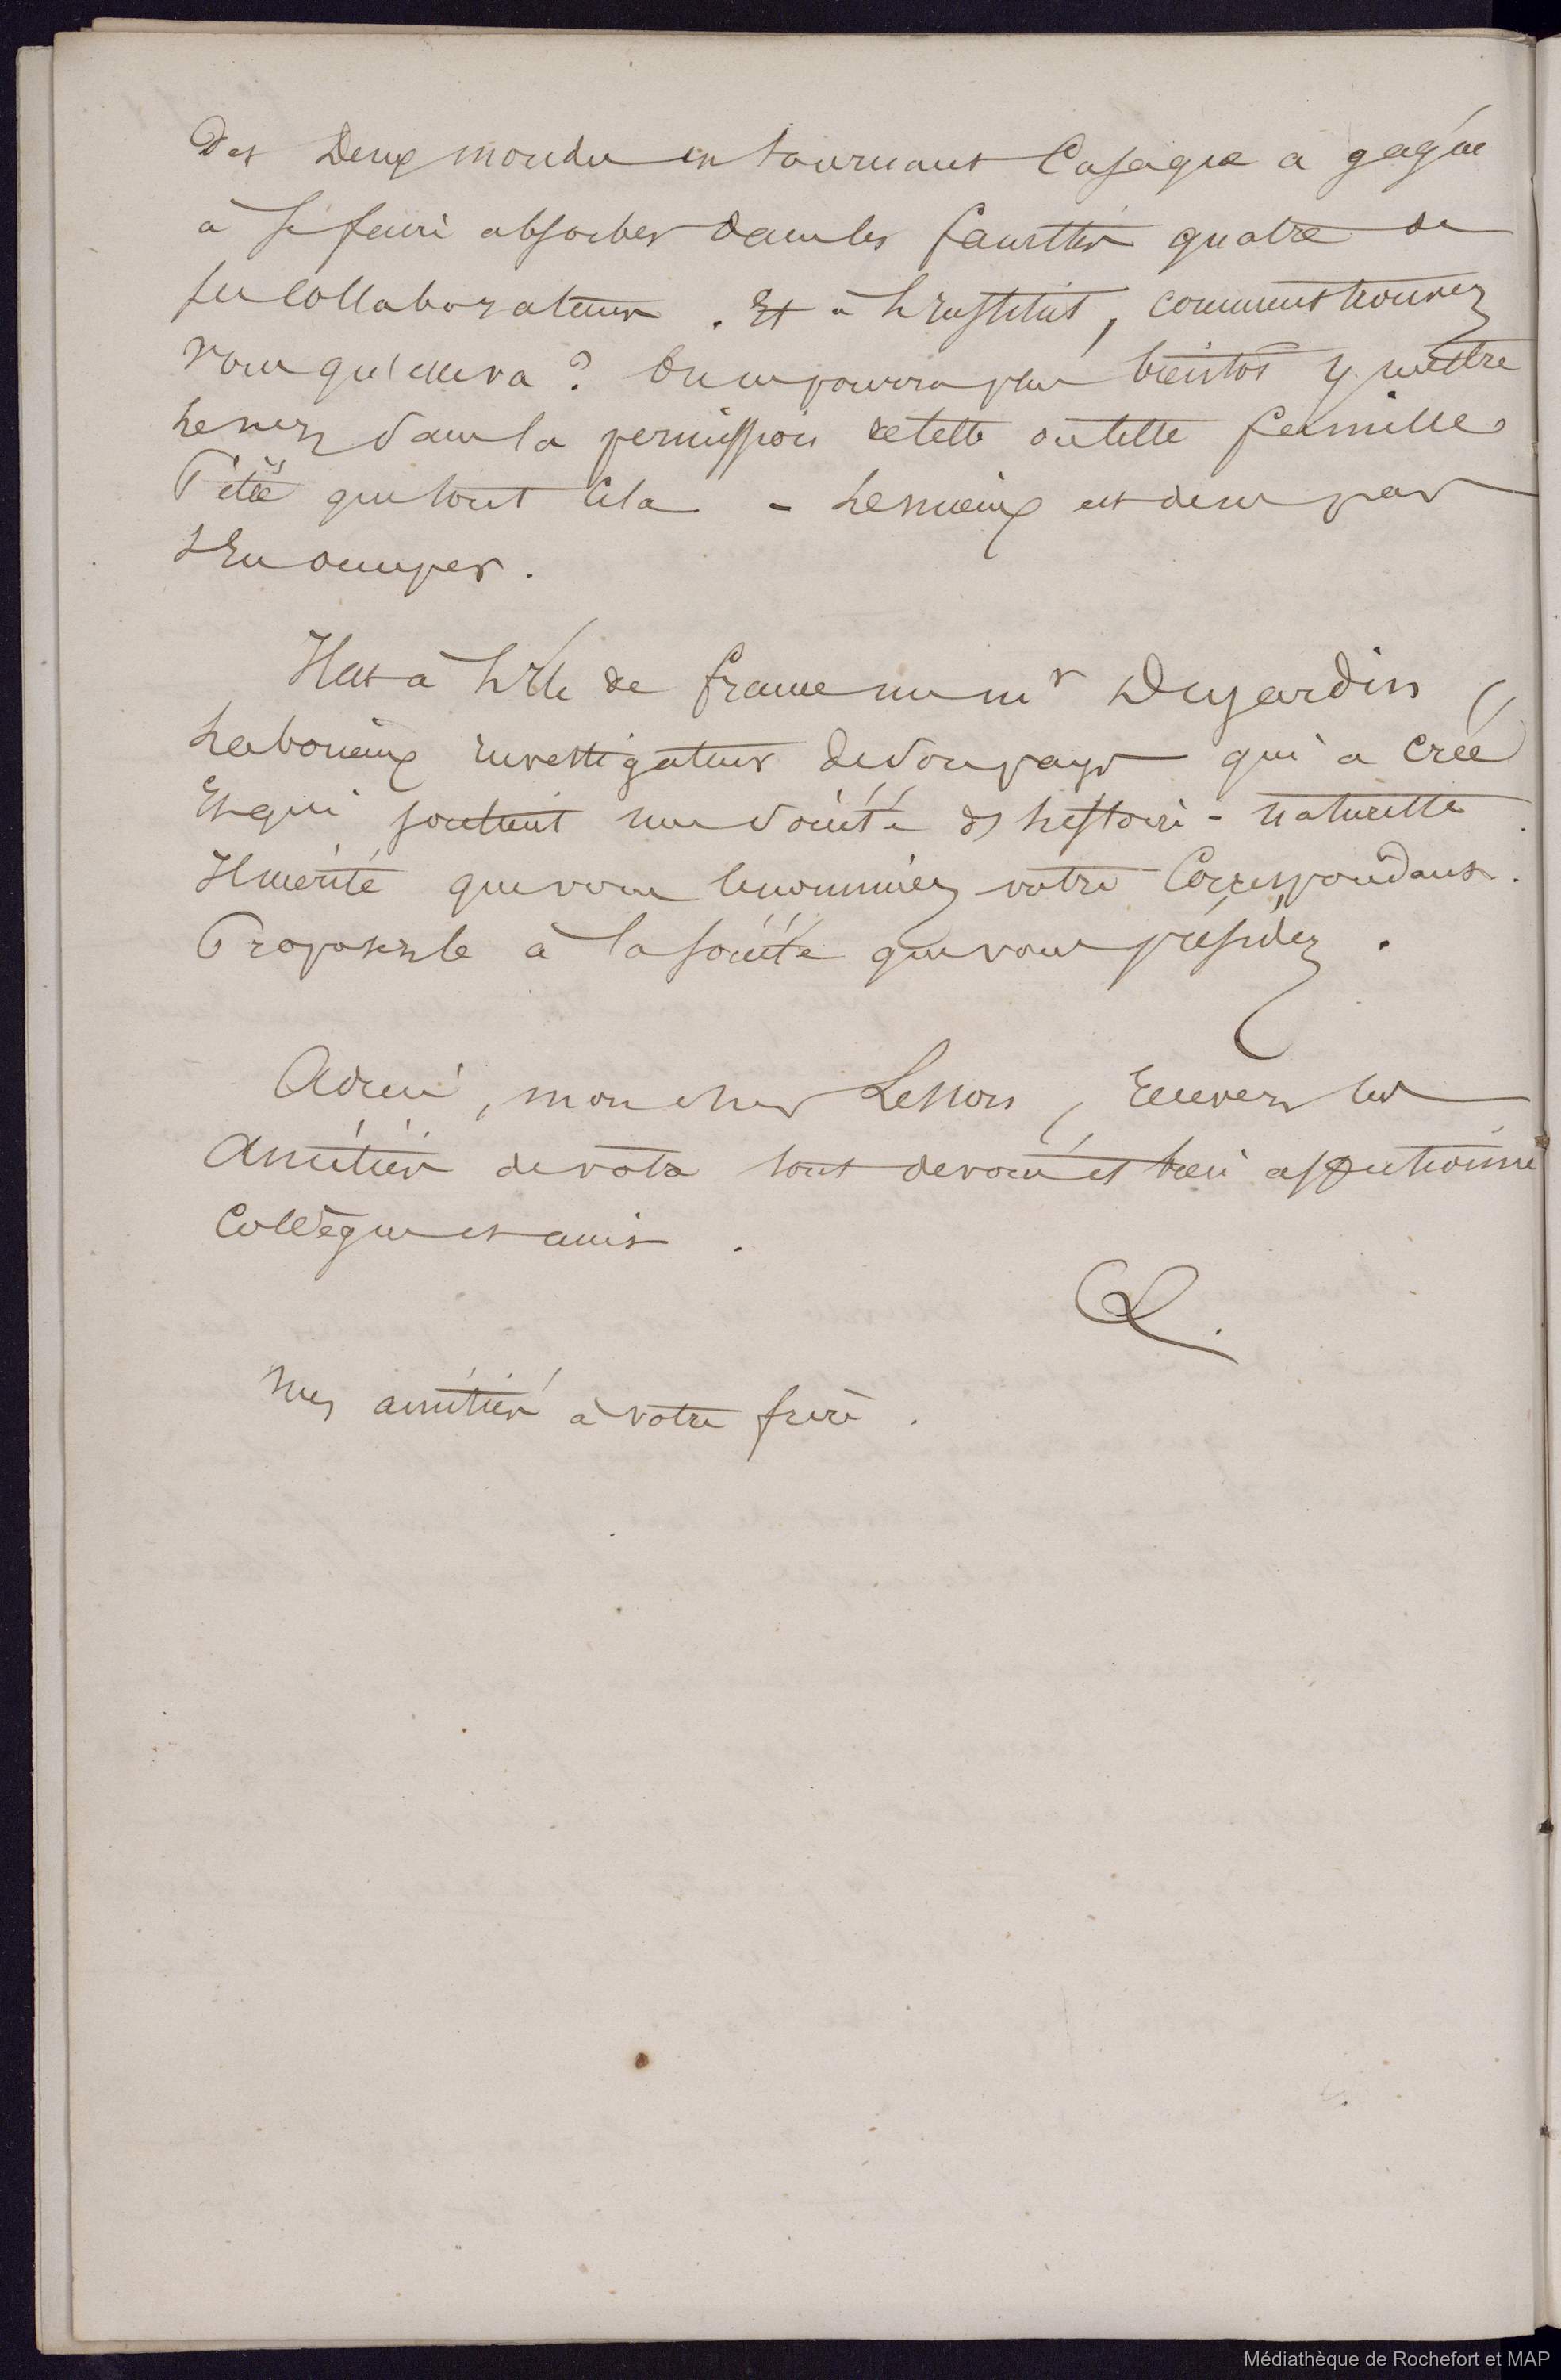 Des Deux mondes en tournant Casaque a gagné
à se faire absorber dans les facultés quatre de
ses Collaborateurs. Et à l'Institut, comment trouvez
vous qu'elle va? On ne pourra plus bientôt y mettre
le nez sans la permission de telle ou telle famille
Pitié que tout cela - le mieux est de ne pas
s'En occuper.
Il est à l'Ile de france un mr Dujardin,
laborieux investigateur de son pays qui a créé
Et qui soutient une société d'histoire-naturelle
Il mérite que vous le nommiez votre Correspondant.
Proposez le à la société que vous présidez.
Adieu, mon cher Lesson, Recevez les
Amitiés de votre tout dévoué et bien affectionné
Collègue et ami.
Mes amitiés à votre frère.
Médiathèque de Rochefort et MAP